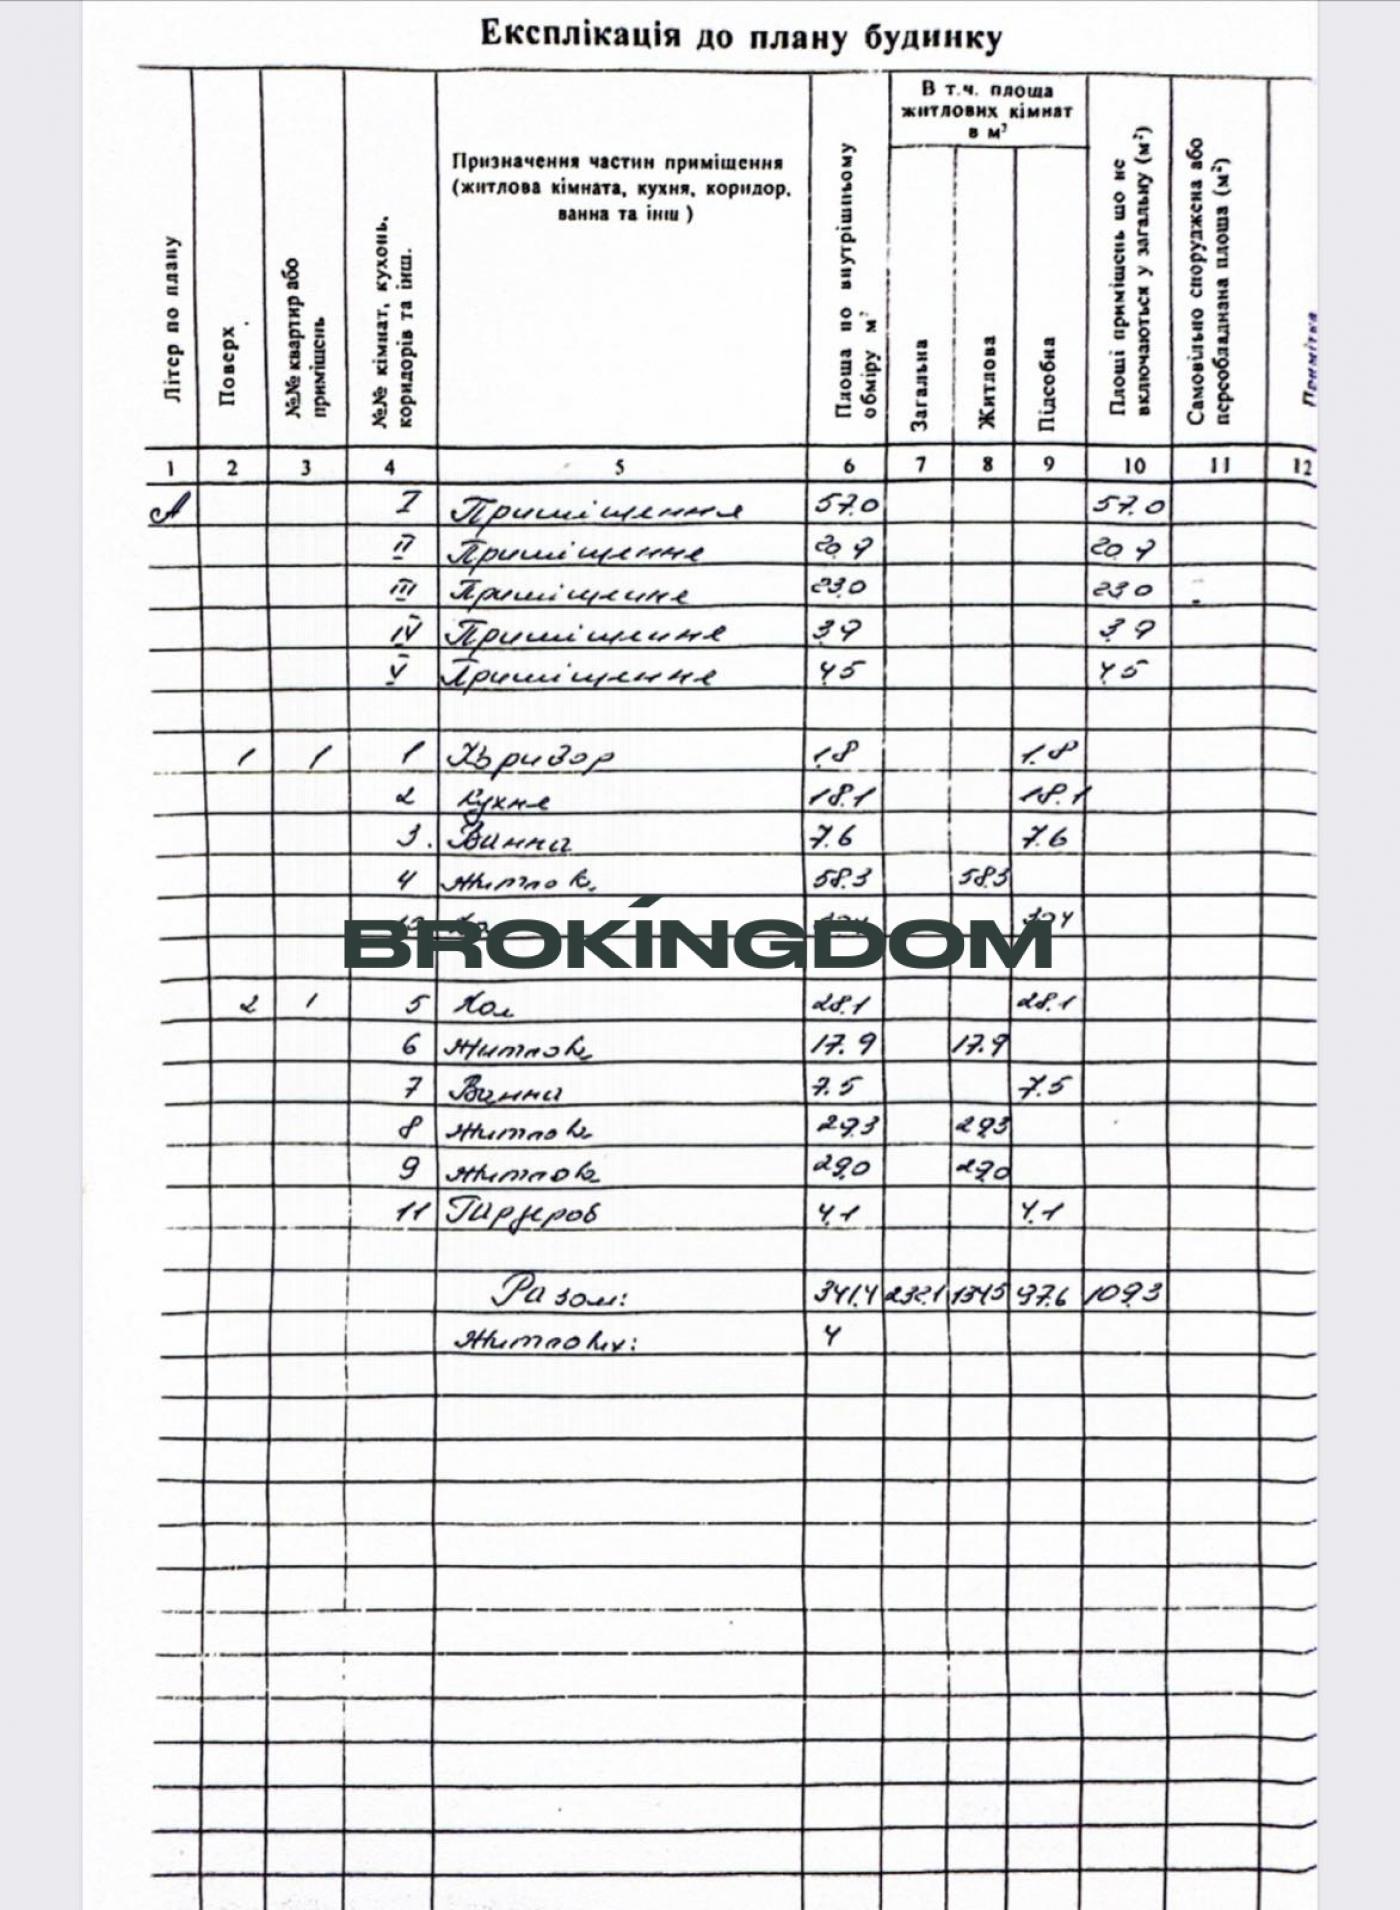 Експлікація до плану будинку
Літер по плану
Поверх
№№ квартир або приміщень
№№ кімнат, кухонь, коридорів та інш.
Призначення частин приміщення
(житлова кімната, кухня, коридор,
ванна та інш)
Площа по внутрішньому обміру м²
В т.ч. площа
житлових кімнат
в м²
Загальна
Житлова
Підсобна
Площі приміщень що не включаються у загальну (м²)
Самовільно споруджена або переобладнана площа (м²)
Примітка
1 2 3 4 5 6 7 8 9 10 11 12
А I Приміщення 57.0 57.0
II Приміщення 20.9 20.9
III Приміщення 23.0 23.0
IV Приміщення 3.9 3.9
V Приміщення 4.5 4.5
1 1 1 Коридор 1.8 1.8
2 Кухня 18.1 18.1
3. Ванна 7.6 7.6
4 Житлова 58.3 58.3
30.4
BROKINGDOM
2 1 5 Хол 28.1 28.1
6 Житлова 17.9 17.9
7 Ванна 7.5 7.5
8 Житлова 29.3 29.3
9 Житлова 29.0 29.0
11 Гардероб 4.1 4.1
Разом: 341.4 232.1 134.5 97.6 109.3
Житлових: 4